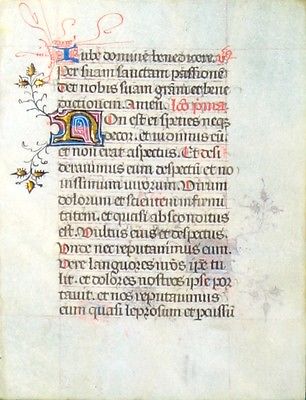 Iube domine benedicere.
Per suam sanctam passione
det nobis suam gratiam et bene
dictionem. Amen. Leo prima
Non est ei species neqz
decor. et vidimus eum
et non erat aspectus. Et desi
deravimus eum despectu et no
vissimum virorum. Virum
dolorum et scientem infirmi
tatem. et quasi absconditus
est. Vultus eius et despectus.
Unde nec reputavimus eum.
Vere languores nros ipe tu
lit. et dolores nostros ipse por
tavit. et nos reputavimus
eum quasi leprosum et pcussu